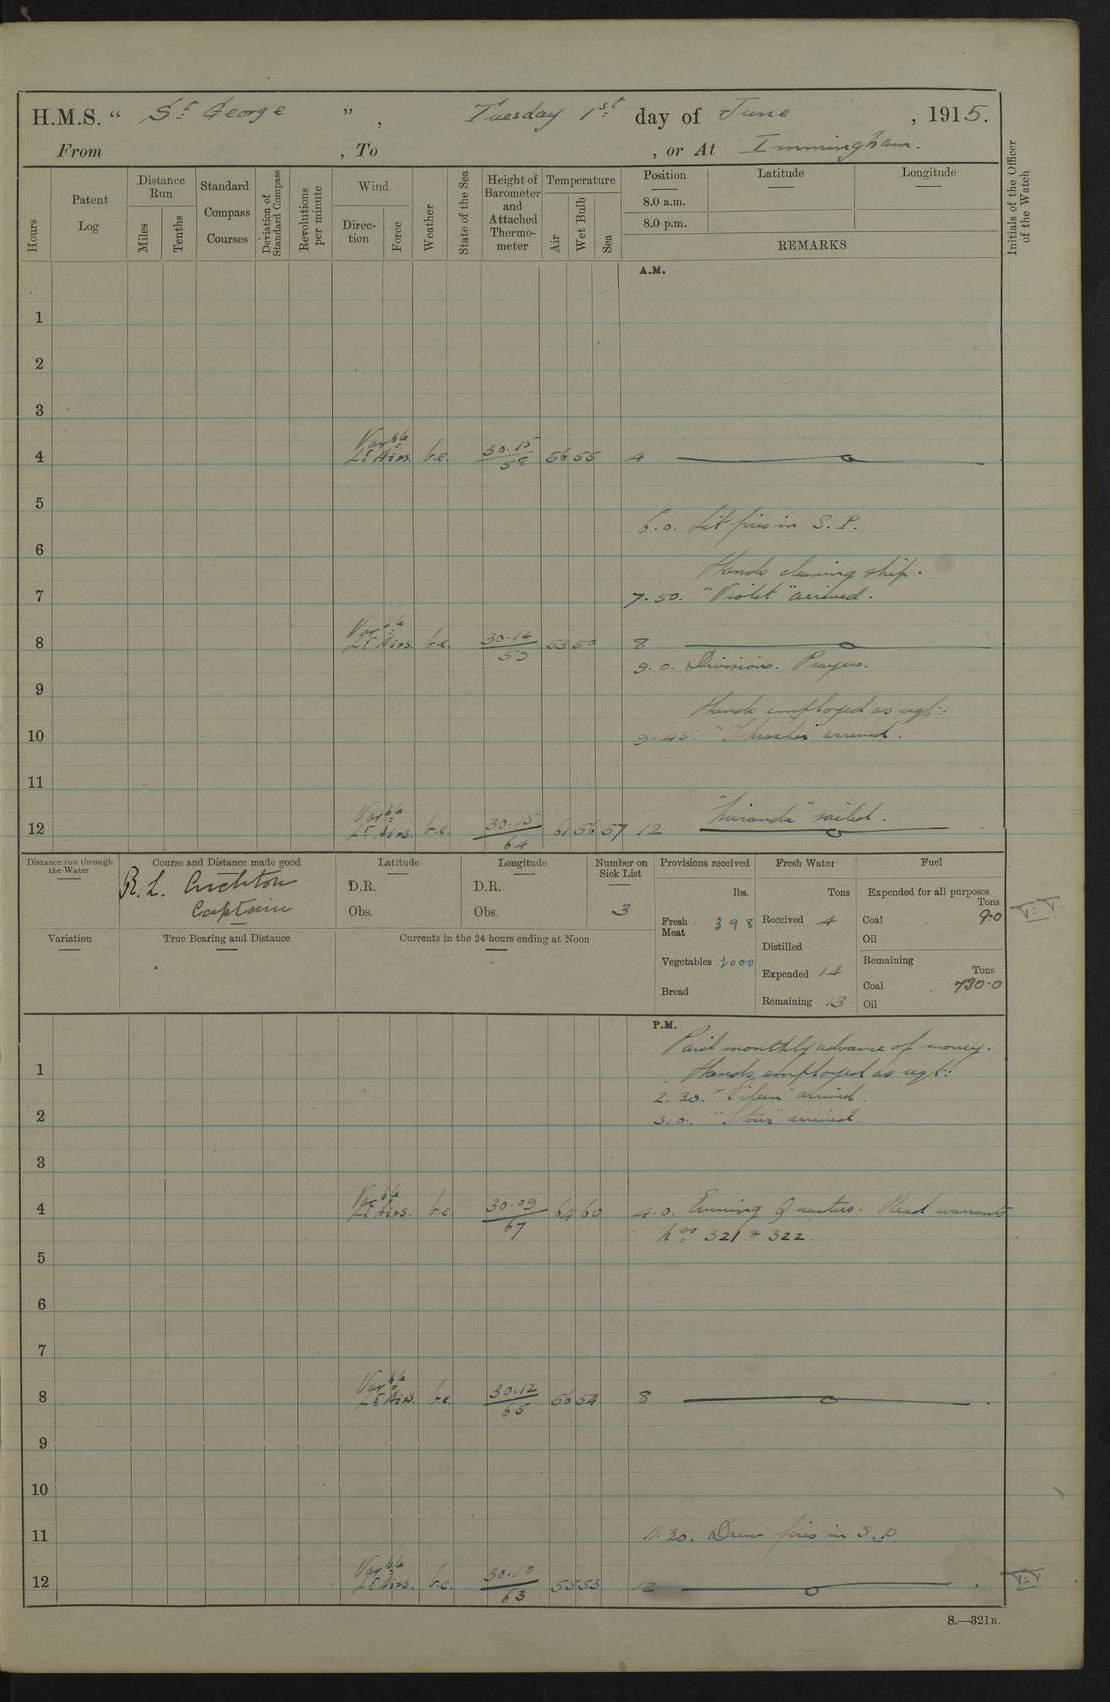 H.M.S. “ St George ” , Tuesday 1st day of June , 1915.
From , To , or At Immingham.
Hours
Patent Log
Distance Run
Miles
Tenths
Standard Compass Courses
Deviation of Standard Compass
Revolutions per minute
Wind
Direction
Force
Weather
State of the Sea
Height of Barometer and Attached Thermometer
Temperature
Air
Wet Bulb
Sea
Position
8.0 a.m.
8.0 p.m.
Latitude
Longitude
REMARKS
Initials of the Officer of the Watch
A.M.
1
2
3
4 Varble Lt Airs. b.c. 30.15 58 56 55 4
5
6.0. Lit fires in S. P.
6
Hands cleaning ship.
7 7.50. "Violet" arrived.
8 Varble Lt Airs. b.c. 30.12 59 53 50 8
9.0. Divisions. Prayers.
9
Hands employed as reqt:
10 9.45. arrived.
11
sailed.
12 Varble Lt Airs. b.c. 30.15 64 61 56 57 12
Distance run through the Water
Course and Distance made good
R. L. Crichton
Captain
Latitude
D.R.
Obs.
Longitude
D.R.
Obs.
Number on Sick List
3
Provisions received
lbs.
Fresh Meat 398
Vegetables 2000
Bread
Fresh Water
Tons
Received 4
Distilled
Expended 14
Remaining 13
Fuel
Expended for all purposes
Tons
Coal 9.0
Oil
Remaining
Tons
Coal 730.0
Oil
Variation
True Bearing and Distance
Currents in the 24 hours ending at Noon
P.M.
Paid monthly advance of money.
1 Hands employed as reqt:
2.30. arrived.
2 3.0. "Stour" arrived.
3
4 Varble Lt Airs. b.c. 30.09 67 64 60 4.0. Evening Quarters. Read warrants
Nos 321 & 322.
5
6
7
8 Varble Lt Airs. b.c. 30.12 65 56 54 8
9
10
11 11.30. Drew fires in S.P.
12 Varble Lt Airs. b.c. 30.10 63 55 53 12
S.—321B.